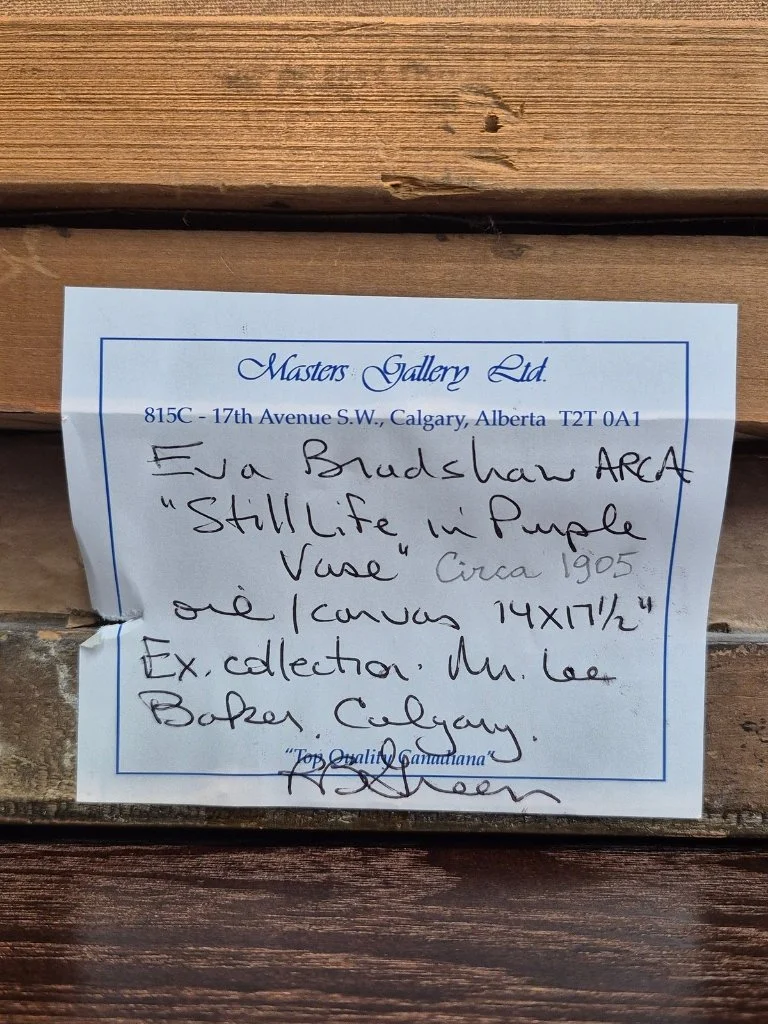 Masters Gallery Ltd.
815C - 17th Avenue S.W., Calgary, Alberta T2T 0A1
Eva Bradshaw ARCA
"Still Life in Purple
Vase" Circa 1905
oil/canvas 14X17½"
Ex. collection. Mr. Lee
Baker, Calgary.
"Top Quality Canadiana"